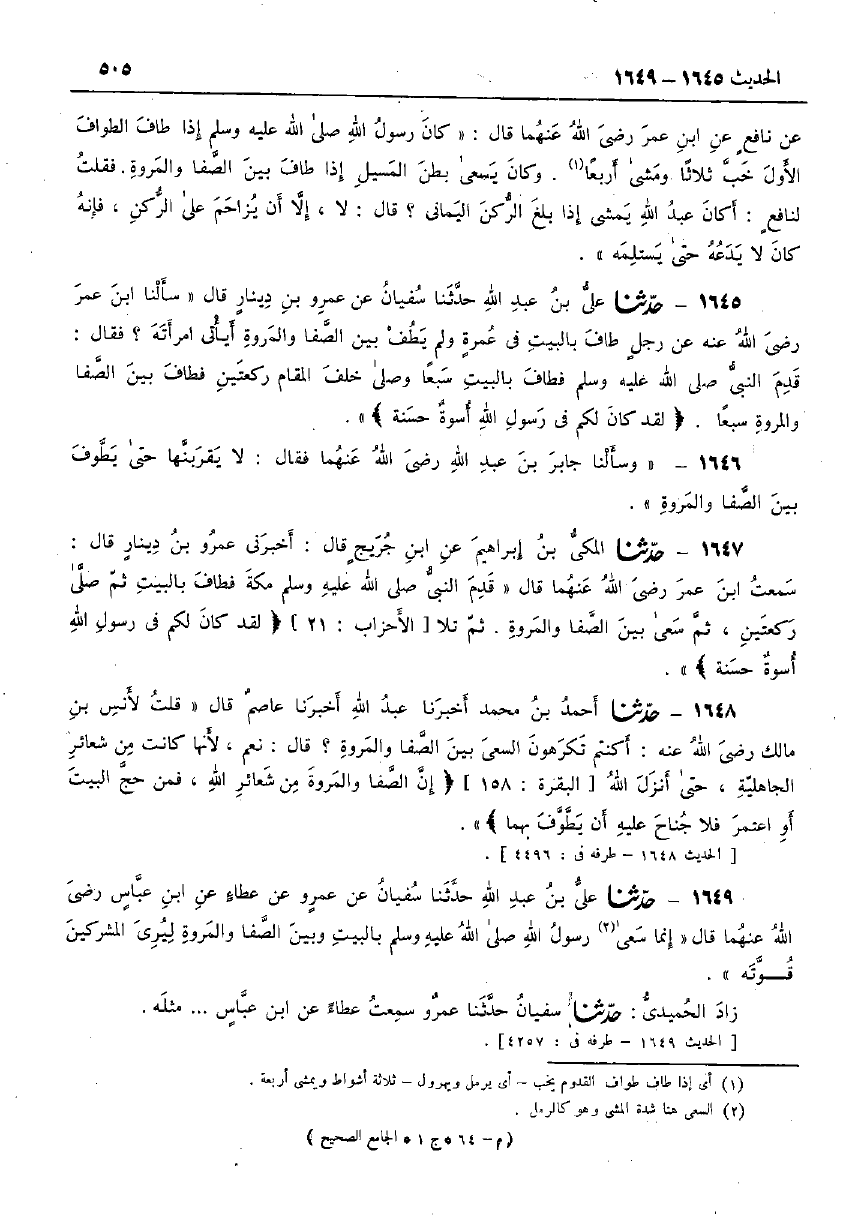 الحديث ١٦٤٥ – ١٦٤٩ ٥٠٥
عن نافعٍ عنِ ابنِ عمرَ رضىَ اللهُ عَنهُما قال : « كانَ رسولُ اللهِ صلىٰ الله عليه وسلم إذا طافَ الطوافَ
الأَولَ خَبَّ ثلاثًا ومَشىٰ أربعًا(١) . وكانَ يَسعىٰ بطنَ المَسيلِ إذا طافَ بينَ الصَّفا والمَروةِ. فقلتُ
لنافعٍ : أكانَ عبدُ اللهِ يَمشى إذا بلغَ الرُّكنَ اليَمانى ؟ قال : لا ، إلَّا أن يُزاحَمَ علىٰ الرُّكنِ ، فإنهُ
كانَ لا يَدَعُهُ حتىٰ يَستلِمَه » .
١٦٤٥ – حدّثنا علىُّ بنُ عبدِ اللهِ حدَّثَنا سُفيانُ عن عمرِو بنِ دِينارٍ قال « سأَلْنا ابنَ عمرَ
رضىَ اللهُ عنه عن رجلٍ طافَ بالبيتِ فى عُمرةٍ ولم يَطُفْ بين الصَّفا والمَروةِ أَيأْتى امرأتَهَ ؟ فقال :
قَدِمَ النبىُّ صلى الله عليه وسلم فطافَ بالبيتِ سَبعًا وصلىٰ خلفَ المَقام ركعتَينِ فطافَ بينَ الصَّفا
والمروةِ سبعًا . ﴿ لقد كانَ لكم فى رَسولِ اللهِ أُسوةٌ حسَنة ﴾ » .
١٦٤٦ – « وسأَلْنا جابرَ بنَ عبدِ اللهِ رضىَ اللهُ عَنهُما فقال : لا يَقرَبنَّها حتىٰ يَطُوفَ
بينَ الصَّفا والمَروةِ » .
١٦٤٧ – حدّثنا المكىُّ بنُ إبراهيمَ عنِ ابنِ جُرَيجٍ قال : أخبرَنى عمرُو بنُ دِينارٍ قال :
سَمعتُ ابنَ عمرَ رضىَ اللهُ عَنهُما قال « قَدِمَ النبىُّ صلى الله عليهِ وسلم مكةَ فطافَ بالبيتِ ثمّ صلَّىٰ
رَكعتَينِ ، ثمَّ سَعىٰ بينَ الصَّفا والمَروةِ . ثمّ تلا [ الأَحزاب : ٢١ ] ﴿ لقد كانَ لكم فى رسولِ اللهِ
أُسوةٌ حسَنة ﴾ » .
١٦٤٨ – حدّثنا أحمدُ بنُ محمد أخبرَنا عبدُ اللهِ أخبرَنا عاصمٌ قال « قلتُ لأَنسِ بنِ
مالك رضىَ اللهُ عنه : أكنتم تَكرَهونَ السعىَ بينَ الصَّفا والمَروةِ ؟ قال : نعم ، لأَنها كانت مِن شعائرِ
الجاهليّةِ ، حتىٰ أنزَلَ اللهُ [ البقرة : ١٥٨ ] ﴿ إنَّ الصَّفا والمَروةَ مِن شَعائرِ اللهِ ، فمن حجَّ البيتَ
أوِ اعتمرَ فلا جُناحَ عليهِ أن يَطَّوَّفَ بهما ﴾ » .
[ الحديث ١٦٤٨ – طرفه فى : ٤٤٩٦ ] .
١٦٤٩ – حدّثنا علىُّ بنُ عبدِ اللهِ حدَّثَنا سُفيانُ عن عمرٍو عن عطاءٍ عنِ ابنِ عبَّاسٍ رضىَ
اللهُ عنهُما قال « إنما سَعىٰ(٢) رسولُ اللهِ صلىٰ اللهُ عليهِ وسلم بالبيتِ وبينَ الصَّفا والمَروةِ لِيُرِىَ المشركينَ
قُـــوَّتَه » .
زادَ الحُميدىُّ : حدّثنا سفيانُ حدَّثَنا عمرٌو سمِعتُ عطاءً عن ابن عبَّاسٍ ... مثلَه .
[ الحديث ١٦٤٩ – طرفه فى : ٤٢٥٧] .
(١) أى إذا طاف طواف القدوم يخب – أى يرمل ويهرول – ثلاثة أشواط ويمشى أربعة .
(٢) السعى هنا شدة المشى وهو كالرمل .
(م – ٦٤ * ج ١ * الجامع الصحيح )